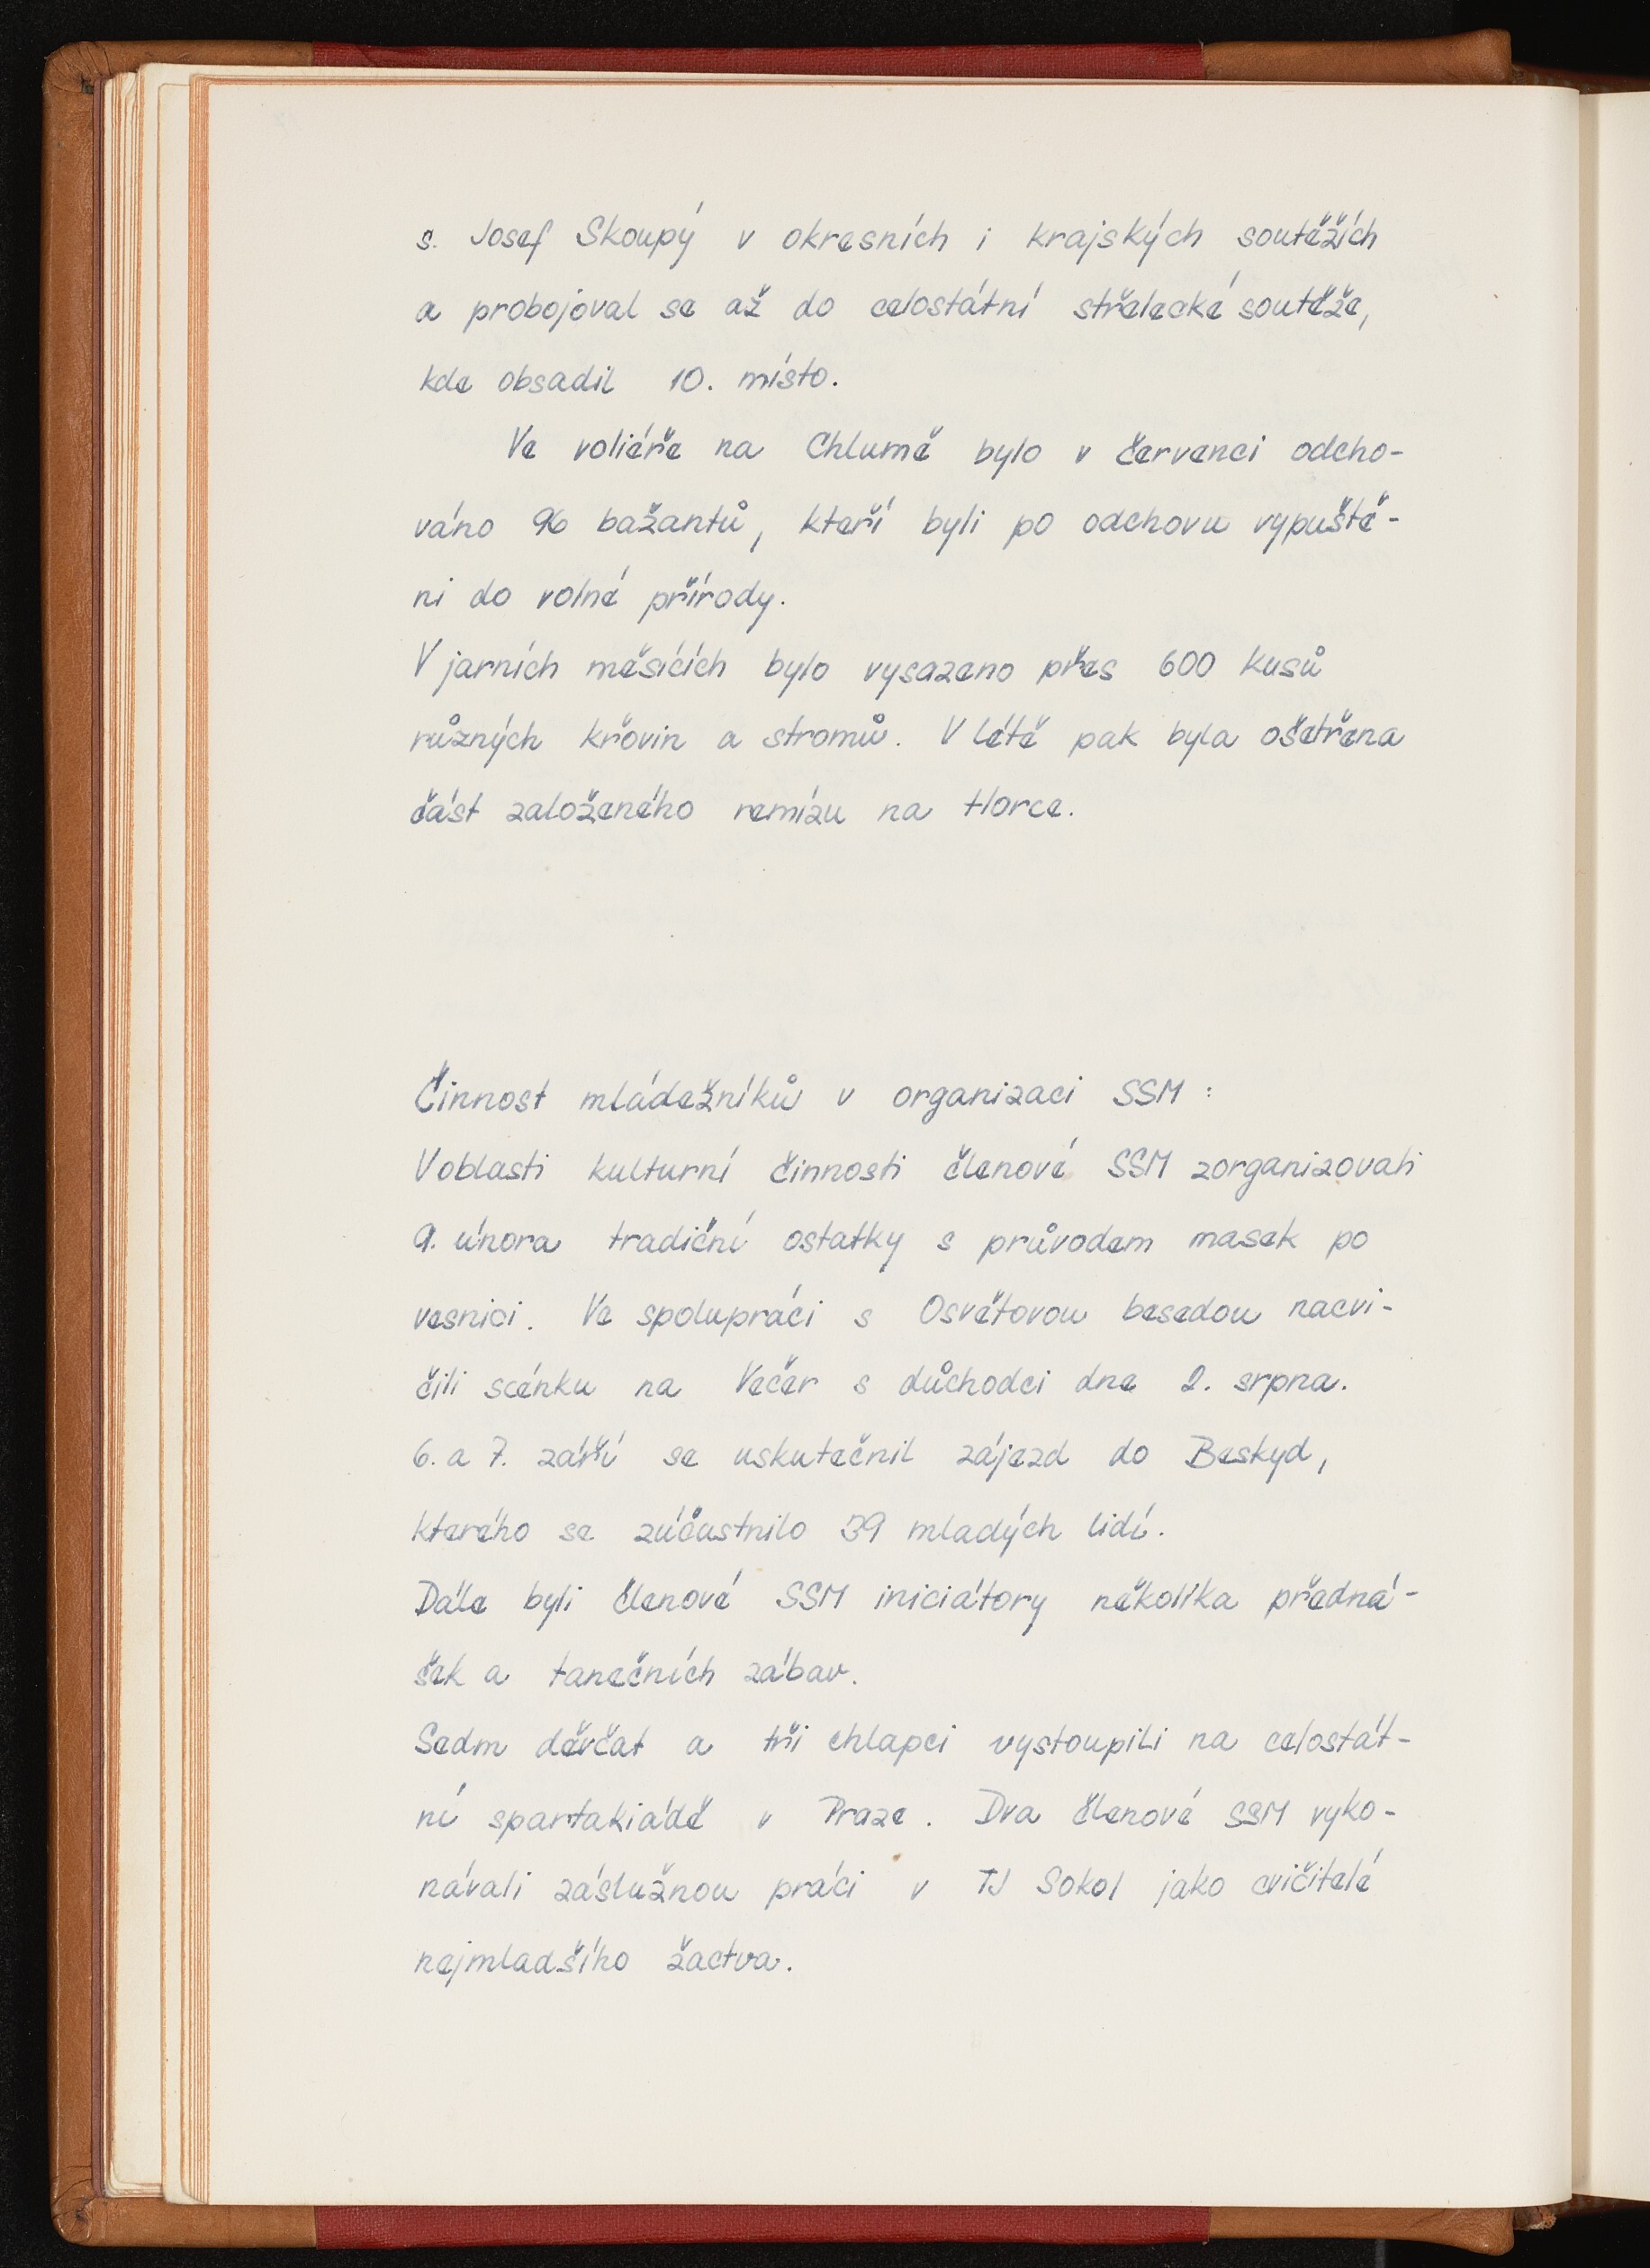 s. Josef Skoupý v okresních i krajských soutěžích
a probojoval se až do celostátní střelecké soutěže,
kde obsadil 10. místo.
Ve voliéře na Chlumě bylo v červenci odcho-
váno 96 bažantů, kteří byli po odchovu vypuště-
ni do volné přírody.
V jarních měsících bylo vysazeno přes 600 kusů
různých křovin a stromů. V létě pak byla ošetřena
část založeného remízu na Horce.
Činnost mládežníků v organizaci SSM :
V oblasti kulturní činnosti členové SSM zorganizovali
9. února tradiční ostatky s průvodem masek po
vesnici. Ve spolupráci s Osvětovou besedou nacvi-
čili scénku na Večer s důchodci dne 2. srpna.
6. a 7. září se uskutečnil zájezd do Beskyd,
kterého se zúčastnilo 39 mladých lidí.
Dále byli členové SSM iniciátory několika předná-
šek a tanečních zábav.
Sedm děvčat a tři chlapci vystoupili na celostát-
ní spartakiádě v Praze. Dva členové SSM vyko-
návali záslužnou práci v TJ Sokol jako cvičitelé
nejmladšího žactva.